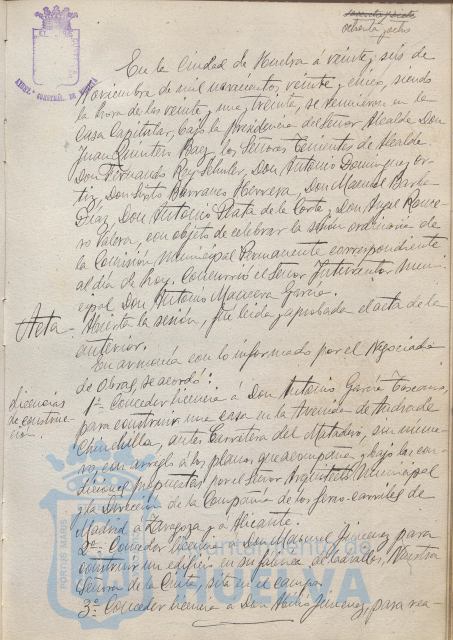 ochenta y ocho
En la Ciudad de Huelva á veinte y seis de
Noviembre de mil novecientos veinte y cinco, siendo
la hora de las veinte y una y treinta, se reunieron en la
Casa Capitular, bajo la presidencia del Señor Alcalde Don
Juan Quintero Baez los Señores Tenientes de Alcalde
Don Fernando Rey Schuler, Don Antonio Dominguez Or-
tiz, Don Sixto Barranco Herrera, Don Manuel Barba
Diaz, Don Antonio Plata de la Corte y Don Angel Rome-
ro Valera, con objeto de celebrar la sesión ordinaria de
la Comisión Municipal Permanente correspondiente
al dia de hoy. Concurrió el Señor Interventor Muni-
cipal Don Antonio García.
Acta
Abierta la sesión, fue leida y aprobada el acta de la
anterior.
En armonia con lo informado por el Negociado
de Obras, se acordó:
Licencias
de construc-
ción.
1º Conceder licencia á Don Antonio García Toscano,
para construir una casa en la Avenida de Andrade
Chinchilla, antes Carretera del Matadero, sin nume-
ro, con arreglo á los planos que acompaña y bajo las con-
diciones propuestas por el Señor Arquitecto Municipal
y la Dirección de la Compañia de los ferro-carriles de
Madrid á Zaragoza y á Alicante.
2º Conceder licencia á Don Manuel Jimenez para
construir un edificio en su finca de Nuestra
Señora de la Cinta, sita en el campo.
3º Conceder licencia á Don Jimenez, para rea-
Ayuntamiento de
HUELVA